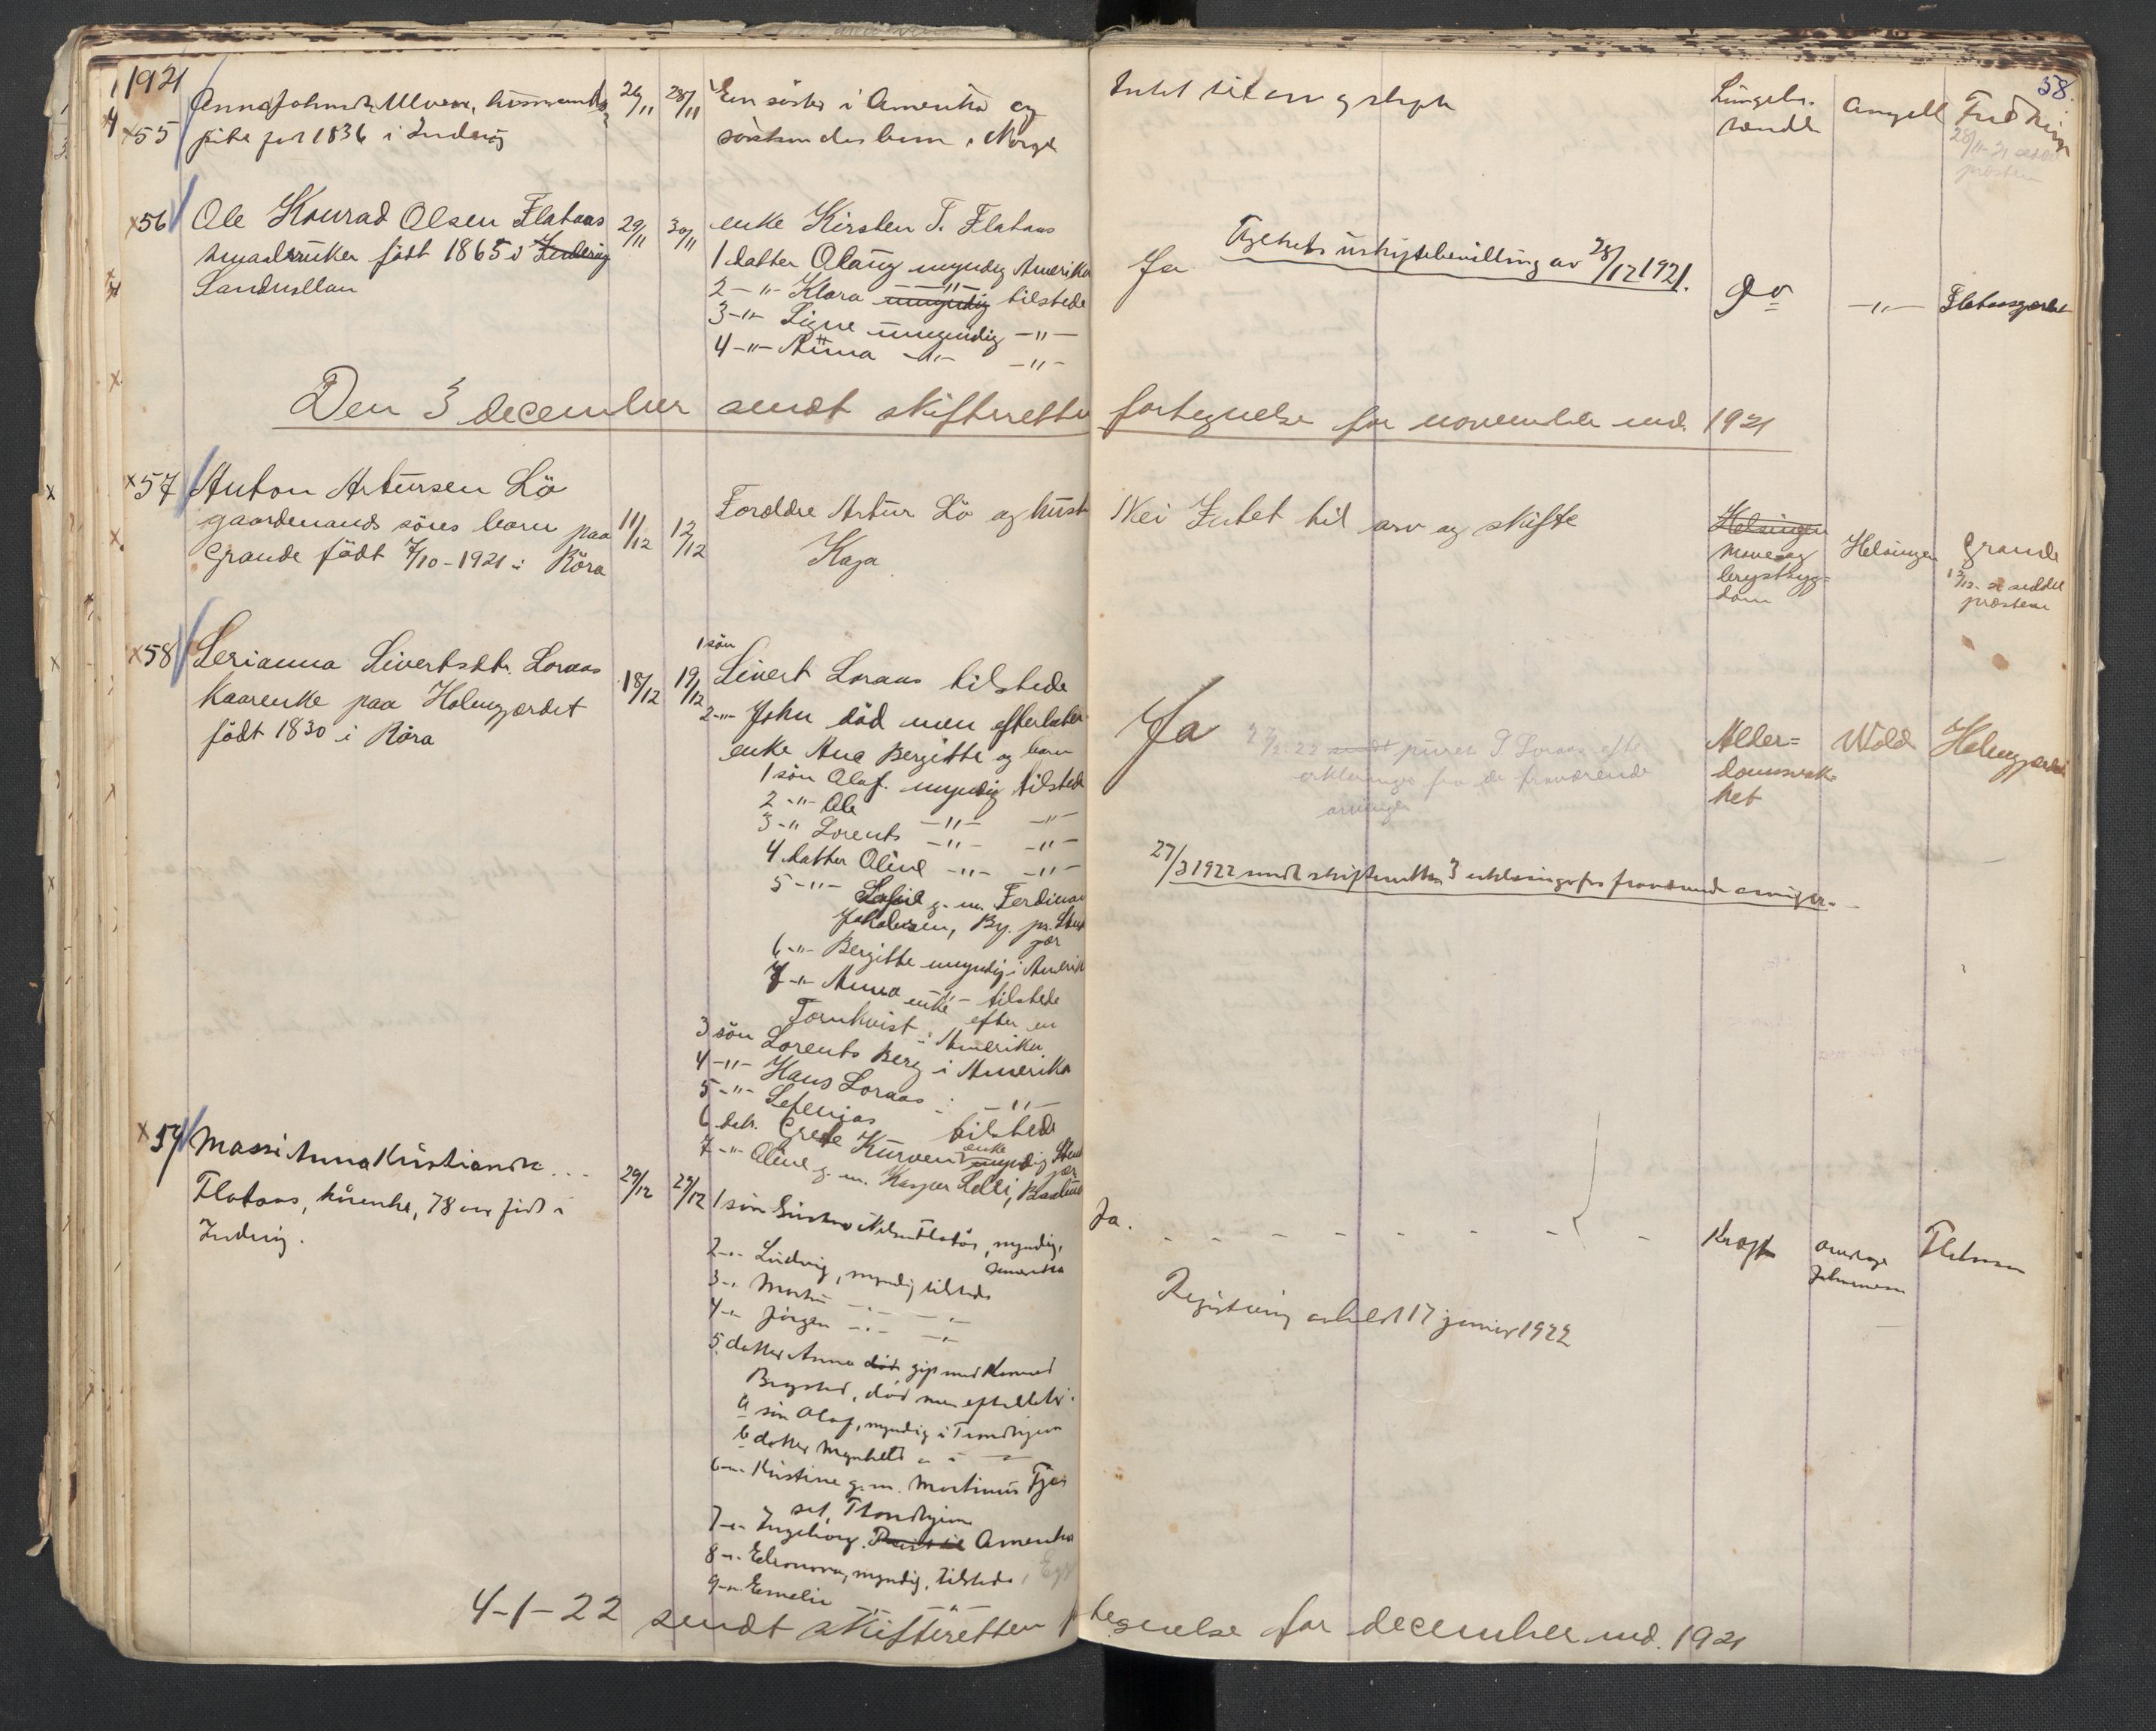 1921
58.
4 55 Anna Johnsdt. Ulven, husmands
pike født 1836 i Inderøy
26/11 28/11
En søster i Amerika og
søskendes barn i Norge
Intet til arv og skifte
Lungebe-
tændelse
Angell
28/11-21
presten
56 Ole Konrad Olsen Flataas
smaabruker födt 1865 i Inderöy
Sandvollan
29/11 30/11
enke Kirsten T. Flataas
1 datter Olaug myndig Amerika
2 -"- Klara umyndig tilstede
3 -"- Signe umyndig -"-
4 -"- Anna -"- -"-
Ja
Uskiftebevilling av 28/12 1921.
do
-"-
Den 3 december sendt skifteretten fortegnelse for november md. 1921
57 Anton Artursen Lö
gaardmands söns barn paa
Grande födt 7/10-1921 i Röra
11/12 12/12
Forældre Artur Lö og hustr
Kaja
Nei Intet til arv og skifte
Helsingen
Mave og
brystsyg=
dom
Helsingen
Grande
12/12- seddel
presten
58 Serianna Sivertsdt. Loraas
Kaarenke paa Holmgjærdet
födt 1830 i Röra
18/12 19/12
1 sön
Sivert Loraas tilstede
2 -"- John död men efterlater
enke Ane Bergitte og barn
1 sön Olaf. myndig tilstede
2 -"- Ole -"- -"-
3 -"- Lorents -"- -"-
4 datter Oline -"- -"-
5 -"- g. m. Ferdinan
Jakobsen, By. pr. Stenk
jær
6 -"- Bergitte myndig i Amerik
7 -"- Anna -"- tilstede
enke efter en
Tornkvist i Amerika
3 sön Lorents Berg i Amerika
4 -"- Hans Loraas i -"-
5 -"- Sefenias tilstede
6 dat. Grete Kurven enke myndig Stenk
jær
7 -"- Oline g. m. Kasper Lelli,
Ja
27/2 22 sendt T Loraas efter
erklæringer fra de fraværende
arvinger
Alder=
domssvak=
het
Wold
Holmgjærdet
27/3 1922 sendt skifteretten 3 erklæringer fra fraværende arvinger.
59 Massi Anna Kristiansdt.
Flataas, kårenke, 78 aar født i
Inderøy.
29/12 29/12
1 søn Gustav Nilsen Flatås, myndig,
Amerika
2 -"- Ludvig, myndig tilstede
3 -"- Martin -"- -"-
4 -"- Jørgen -"- -"-
5 datter Anna død gift med Konrad
død men efterlater:
a søn Olaf, myndig i Trondhjem
b datter
6 -"- Kristine g. m. Martinus
Trondhjem
7 -"- Ingeborg. Amerika
8 -"- Eleonora, myndig, tilstede,
9 -"- Emelie -"- -"-
Ja. - - - - - - -
Kræft
Johannesen
Flataas
Registrering avholdt 17 januar 1922
4-1-22 sendt skifteretten fortegnelse for december md. 1921